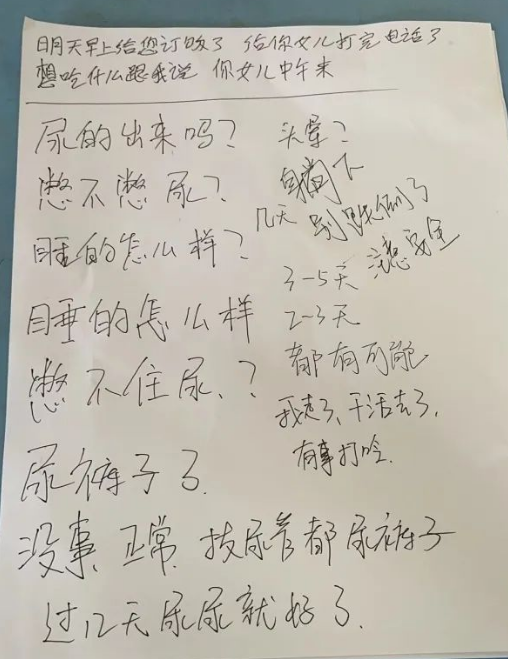 明天早上给您订饭了 给你女儿打完电话了
想吃什么跟我说 你女儿中午来
尿的出来吗?
憋不憋尿?
睡的怎么样?
睡的怎么样
憋不住尿、?
尿裤子了.
头晕?
躺下
几天 别摔倒了
3-5天 注意安全
2-3天
都有可能
我走了、干活去了,
有事打吟.
没事、正常、拔尿管都尿裤子
过几天尿尿就好了.